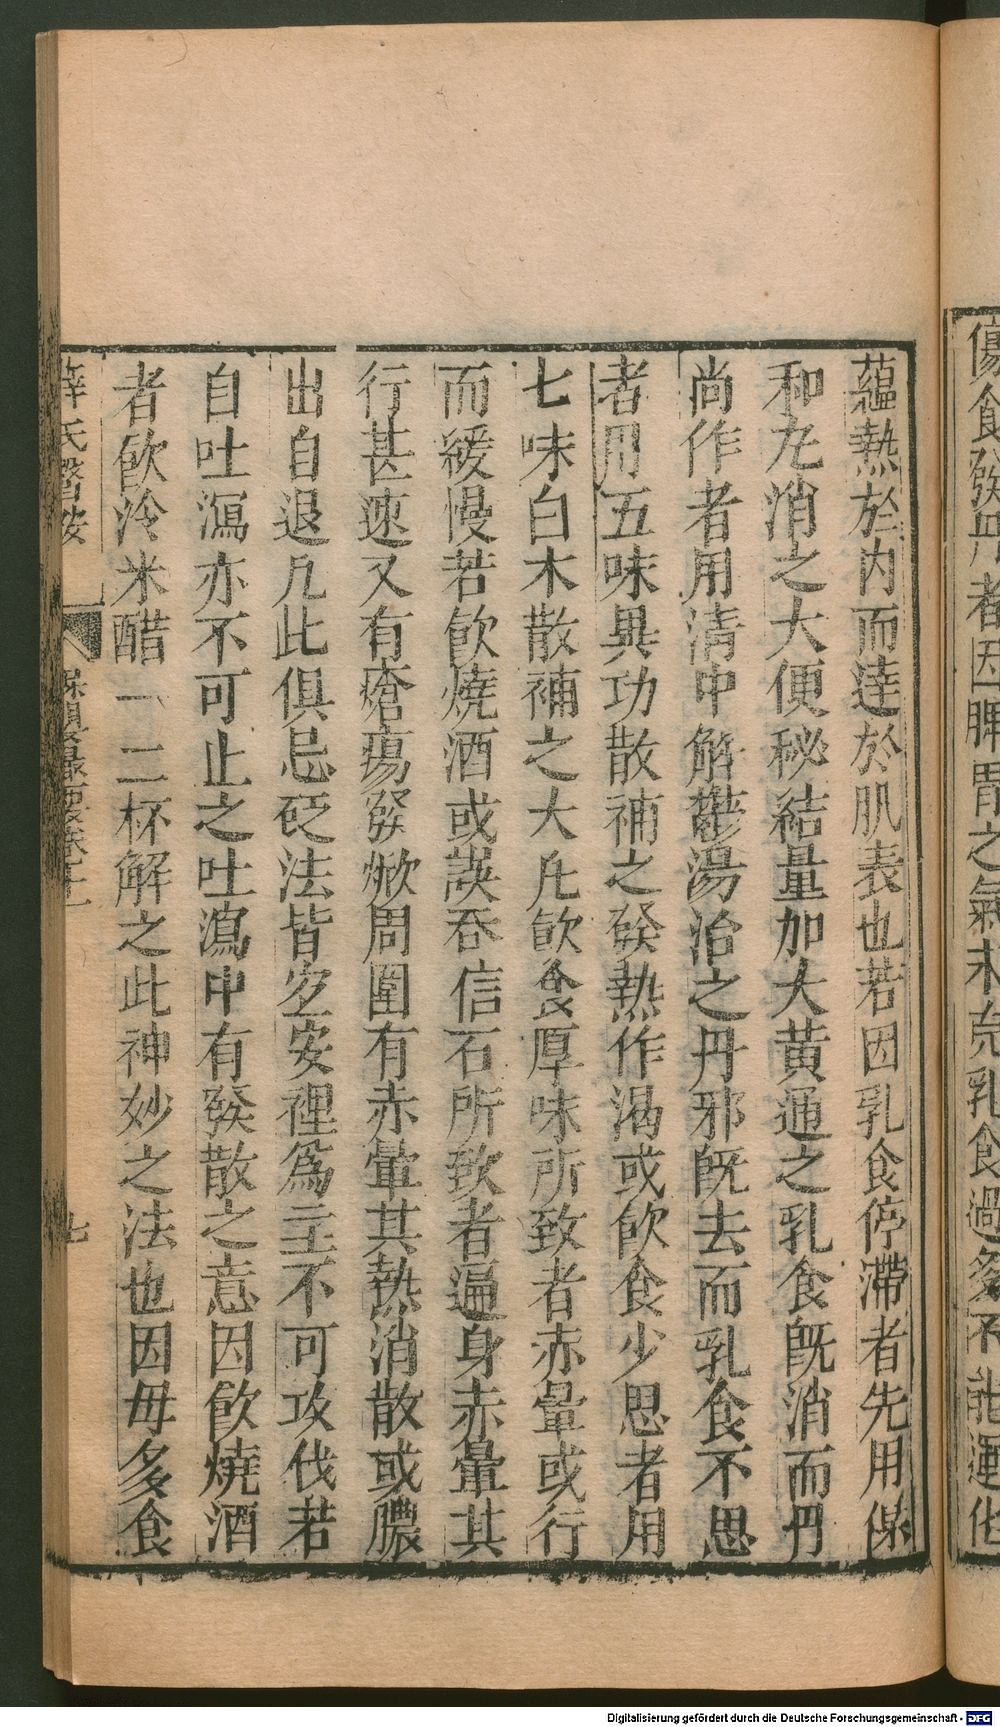 傷食發丹者因脾胃之氣未充乳食過多不能運化
蘊熱於内而達於肌表也若因乳食停滯者先用保
和丸消之大便秘結量加大黄通之乳食既消而丹
尚作者用清中解鬱湯治之丹邪既去而乳食不思
者用五味異功散補之發熱作渴或飲食少思者用
七味白木散補之大凡飲食厚味所致者赤暈或行
而緩慢若飲燒酒或誤吞信石所致者遍身赤暈其
行甚速又有瘡瘍發焮周圍有赤暈其熱消散或膿
出自退凡此俱忌砭法皆宜安裡爲主不可攻伐若
自吐瀉亦不可止之吐瀉中有發散之意因飲燒酒
者飲冷米醋一二杯解之此神妙之法也因毋多食
薛氏醫按
保嬰撮要卷十二
七
Digitalisierung gefördert durch die Deutsche Forschungsgemeinschaft - DFG